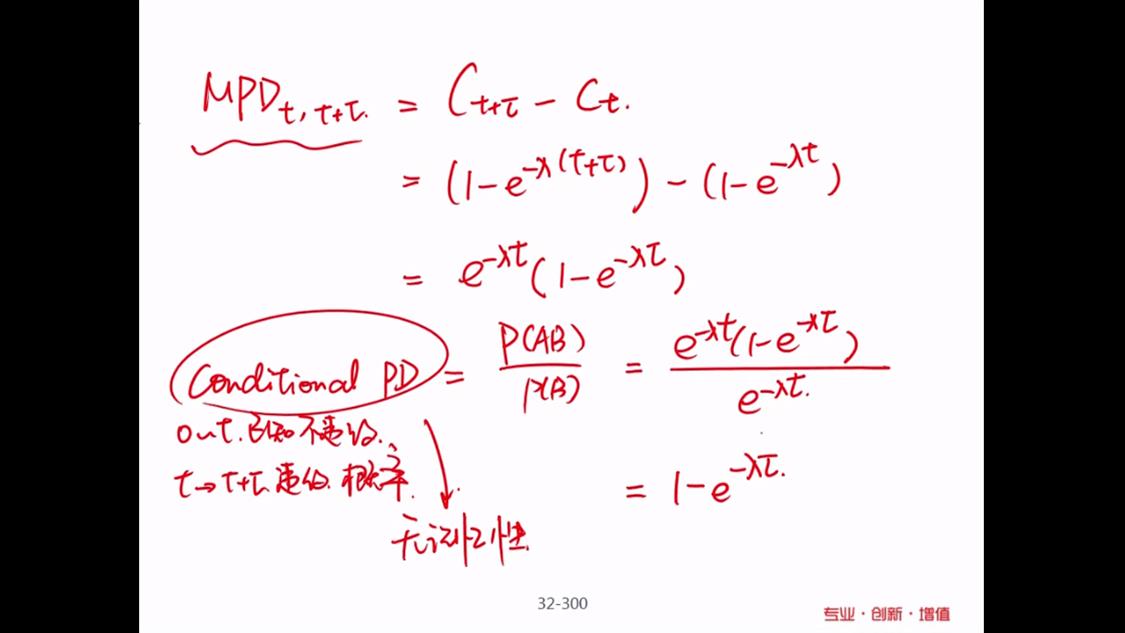 MPD_{t, t+τ} = C_{t+τ} - C_t.
= (1-e^{-λ(t+τ)}) - (1-e^{-λt})
= e^{-λt}(1-e^{-λτ})
Conditional PD = P(AB)/P(B) = e^{-λt}(1-e^{-λτ})/e^{-λt}.
0~t.已知不违约.
t→t+τ.违约.概率.
= 1-e^{-λτ}.
无记忆性.
32-300
专业·创新·增值